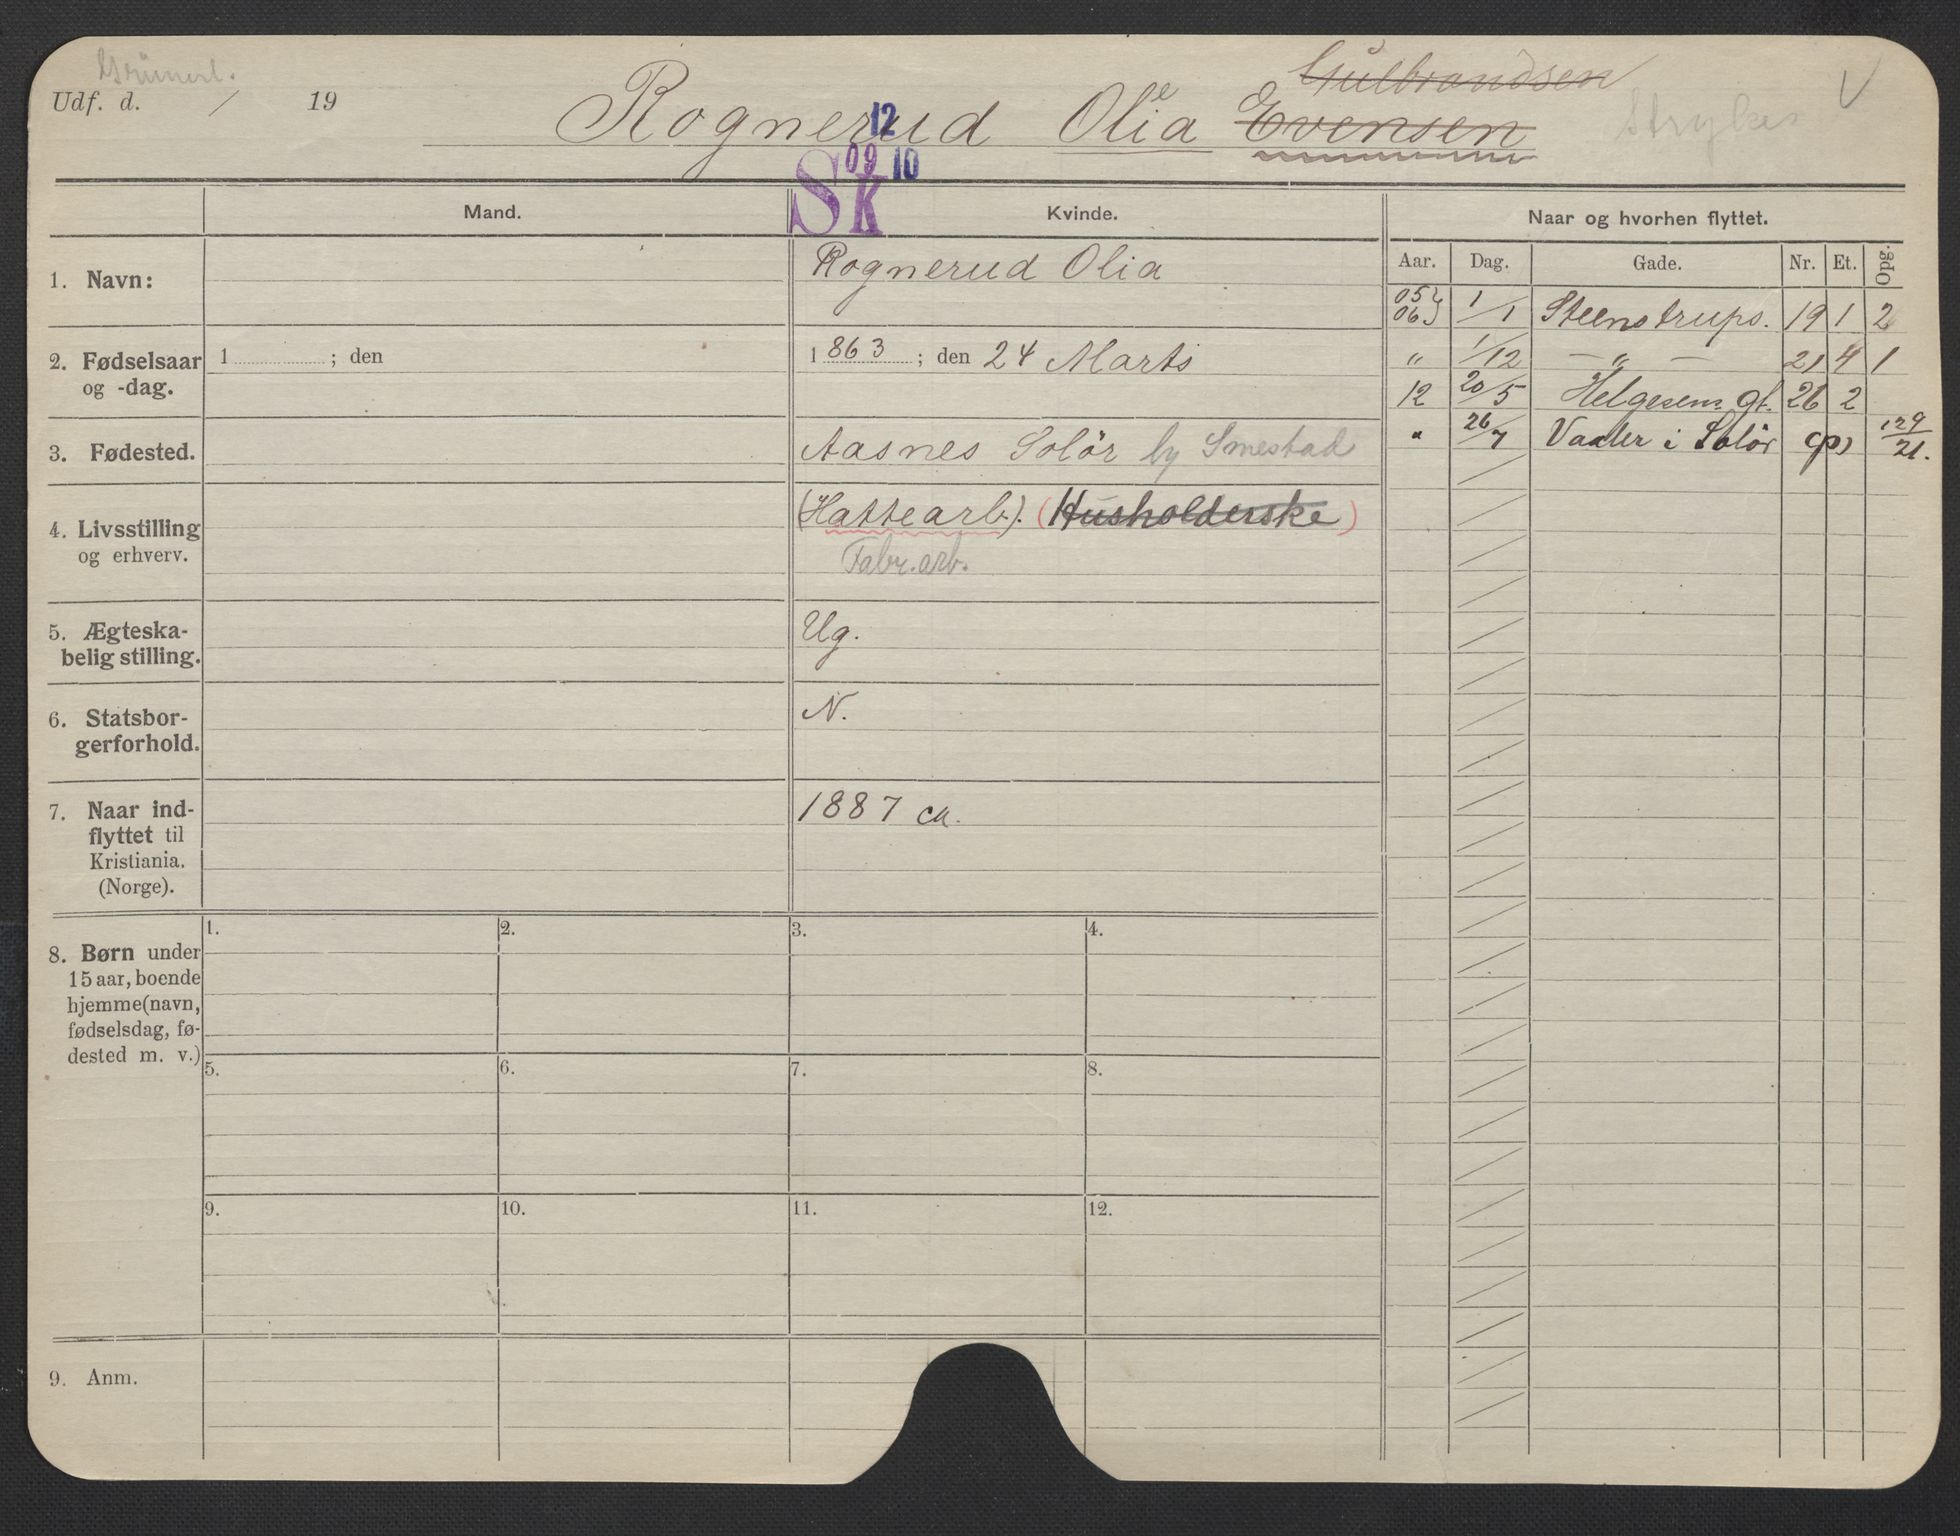 Grünerl.
Udf. d. / 19
Gulbrandsen
Rognerud Olia Evensen
e
Strykes V
12
09 10
SK
Mand. Kvinde. Naar og hvorhen flyttet.
Aar. Dag. Gade. Nr. Et. Opg.
1. Navn: Rognerud Olia
05 06 1/1 Steenstrups. 19 1 2
2. Fødselsaar og -dag. 1 ; den 1863 ; den 24 Marts
„ 1/12 — „ — 21 4 1
12 20/5 Helgesens gt. 26 2
" 26/7 Vaaler i Solör 129/21.
3. Fødested. Aasnes Solör by Smestad
4. Livsstilling og erhverv. (Hattearb.). (Husholderske)
Fabr. arb.
5. Ægteska-
belig stilling. Ug.
6. Statsbor-
gerforhold. N.
7. Naar ind-
flyttet til
Kristiania.
(Norge). 1887 ca.
8. Børn under
15 aar, boende
hjemme (navn,
fødselsdag, fø-
dested m. v.)
1. 2. 3. 4.
5. 6. 7. 8.
9. 10. 11. 12.
9. Anm.